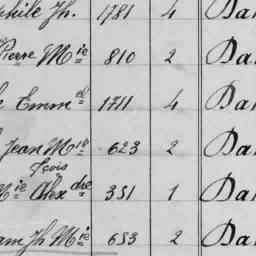 phile Jh. 1781 4 Da
Pierre Mie 810 2 Da
Emmel 1711 4 Da
Jean Mie 623 2 Da
fçois
Mie Alexdre 351 1 Da
am Jh Mie 653 2 Da